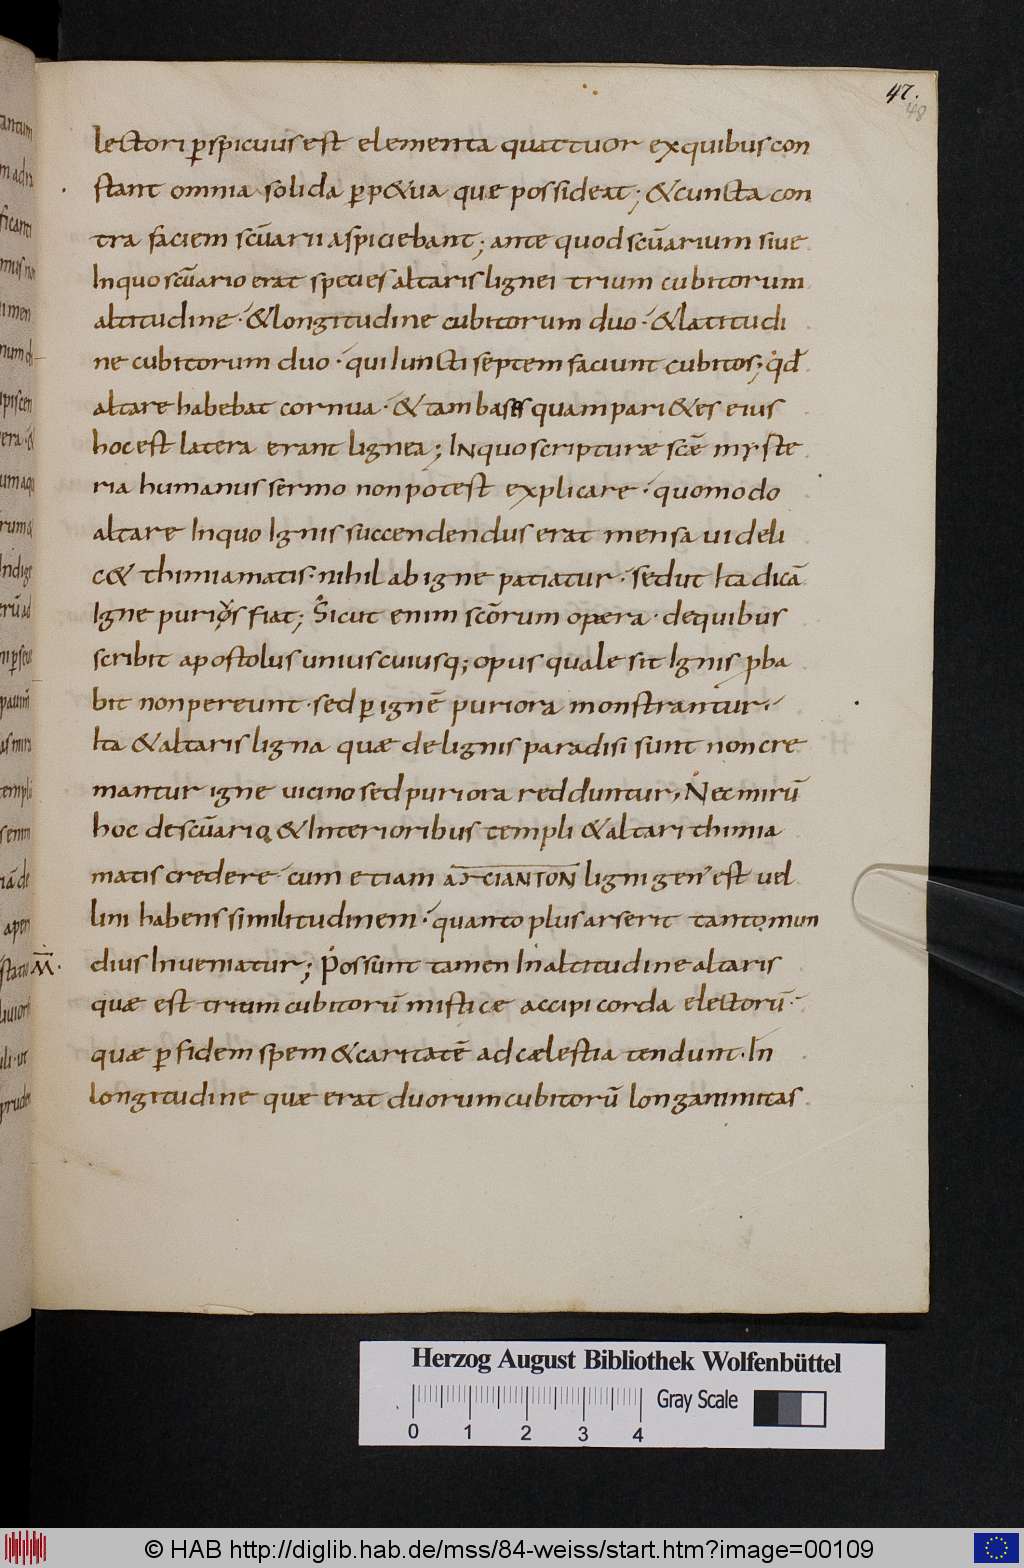 47.
48
lectori ꝑspicuus est elementa quattuor ex quibus con
stant omnia solida ꝑp&ua quę possideat; & cuncta con
tra faciem scūarii aspiciebant; ante quod scūarium siue
In quo scūario erat species altaris lignei trium cubitorum
altitudine· & longitudine cubitorum duo· & latitudi
ne cubitorum duo· qui Iuncti septem faciunt cubitos; qđ
altare habebat cornua· & tam quam pari&es eius
hoc est latera erant lignea; IN quo scripturæ scē myste
ria humanus sermo non potest explicare· quomodo
altare In quo Ignis succendendus erat mensa uideli
c& thimiamatis· nihil ab igne patiatur· sed ut Ita dicā
Igne fiat; Sicut enim scōrum opæra· de quibus
scribit apostolus uniuscuiusq; opus quale sit Ignis ꝓba
bit non pereunt· sed ꝑ ignē puriora monstrantur·
Ita & altaris ligna quæ de lignis paradisi sunt non cre
mantur igne uicino sed puriora redduntur, Nec mirū
hoc de scūario & Interioribus templi & altari thimia
matis credere· cum etiam ligni gen' est uel
lini habens similitudinem· quanto plus arserit tanto mun
dius Inueniatur; Possunt tamen In altitudine altaris
quæ est trium cubitorū mistice accipi corda electorū·
quæ ꝑ fidem spem & caritatē ad cælestia tendunt· In
longitudine quæ erat duorum cubitorū longanimitas
Herzog August Bibliothek Wolfenbüttel
Gray Scale
0 1 2 3 4
© HAB http://diglib.hab.de/mss/84-weiss/start.htm?image=00109